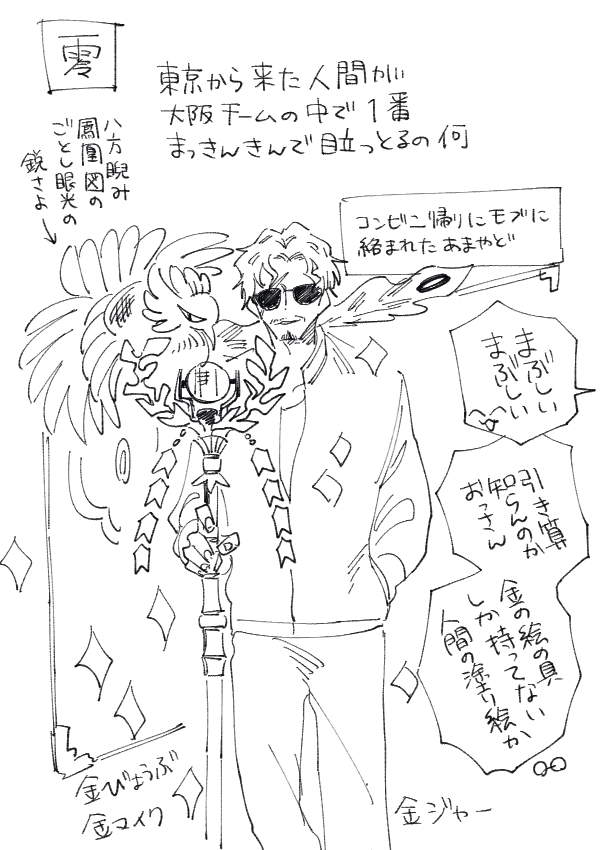 零
東京から来た人間がい
大阪チームの中で1番
まっきんきんで目立っとるの何
八方睨み
鳳凰図の
ごとし眼光の
鋭さよ
コンビニ帰りにモブに
絡まれたあまやど
まぶしい
まぶしい
引き算
知らんのか
おっさん
金の絵の具
しか持ってない
人間の塗り絵か
金びょうぶ
金マイク
金ジャー